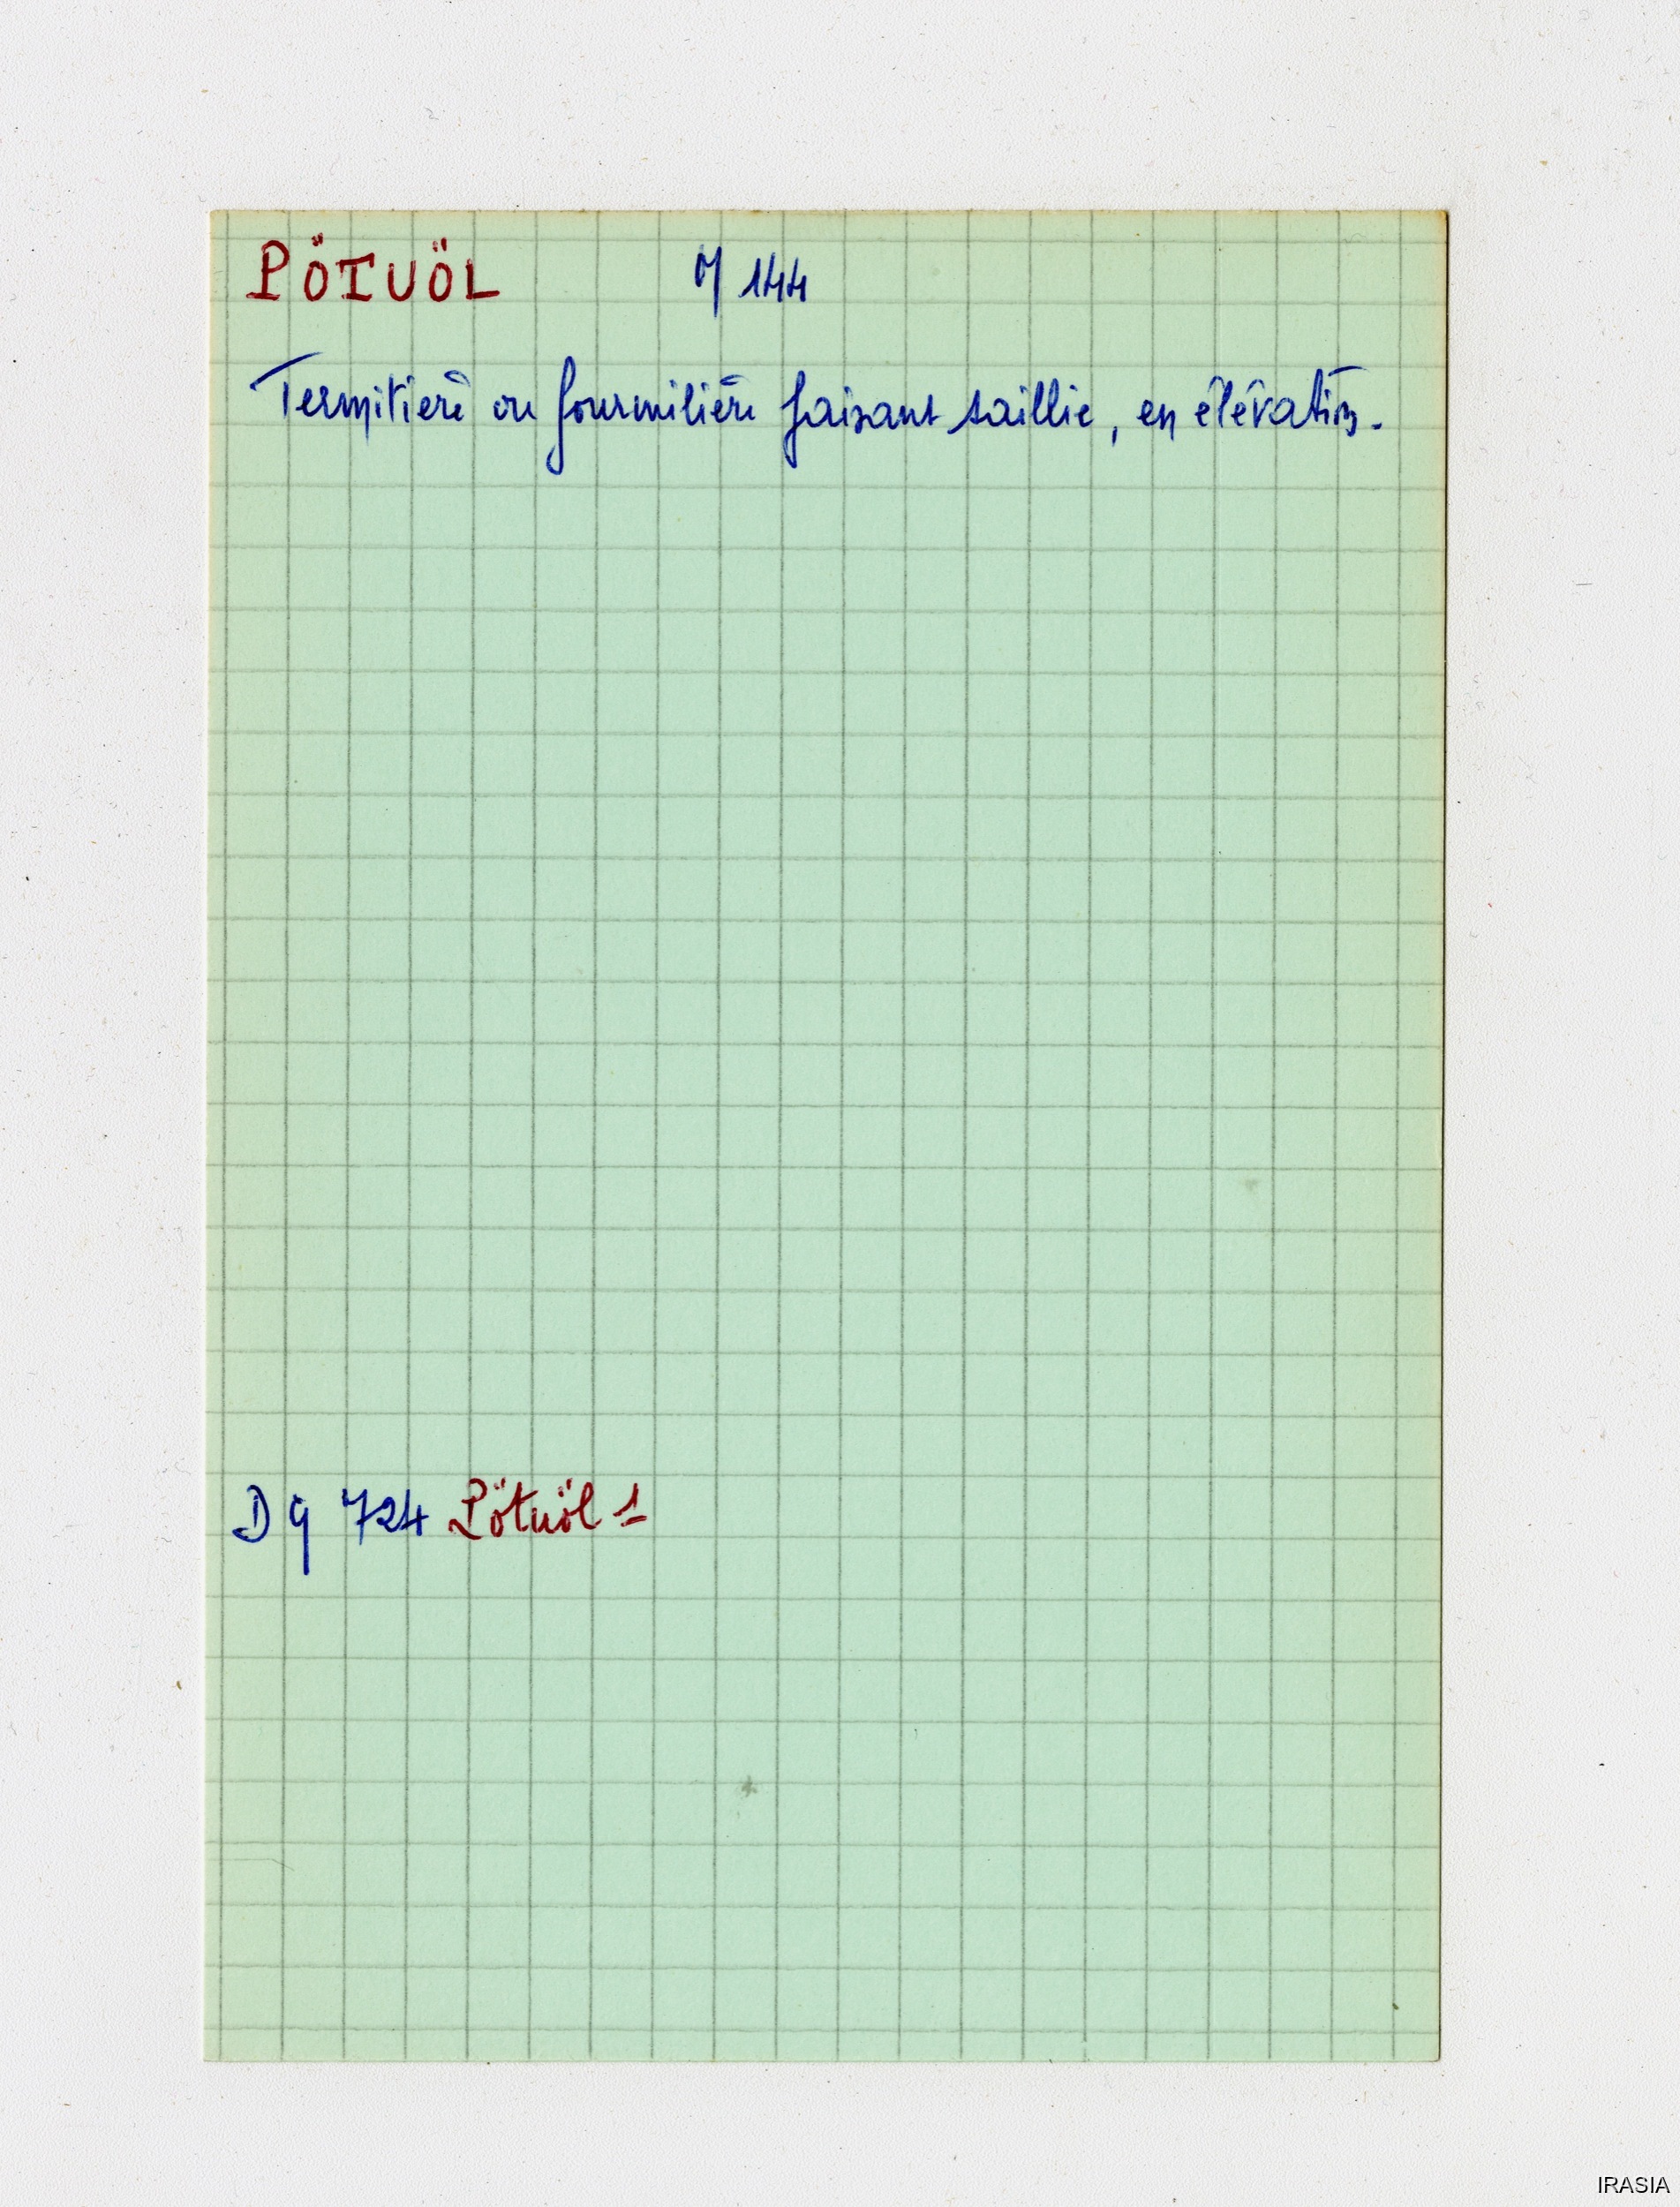 PÖTUÖL M 144
Termitière ou fourmilière faisant saillie, en élévation.
D 9 724 Pötuöl 1
IRASIA